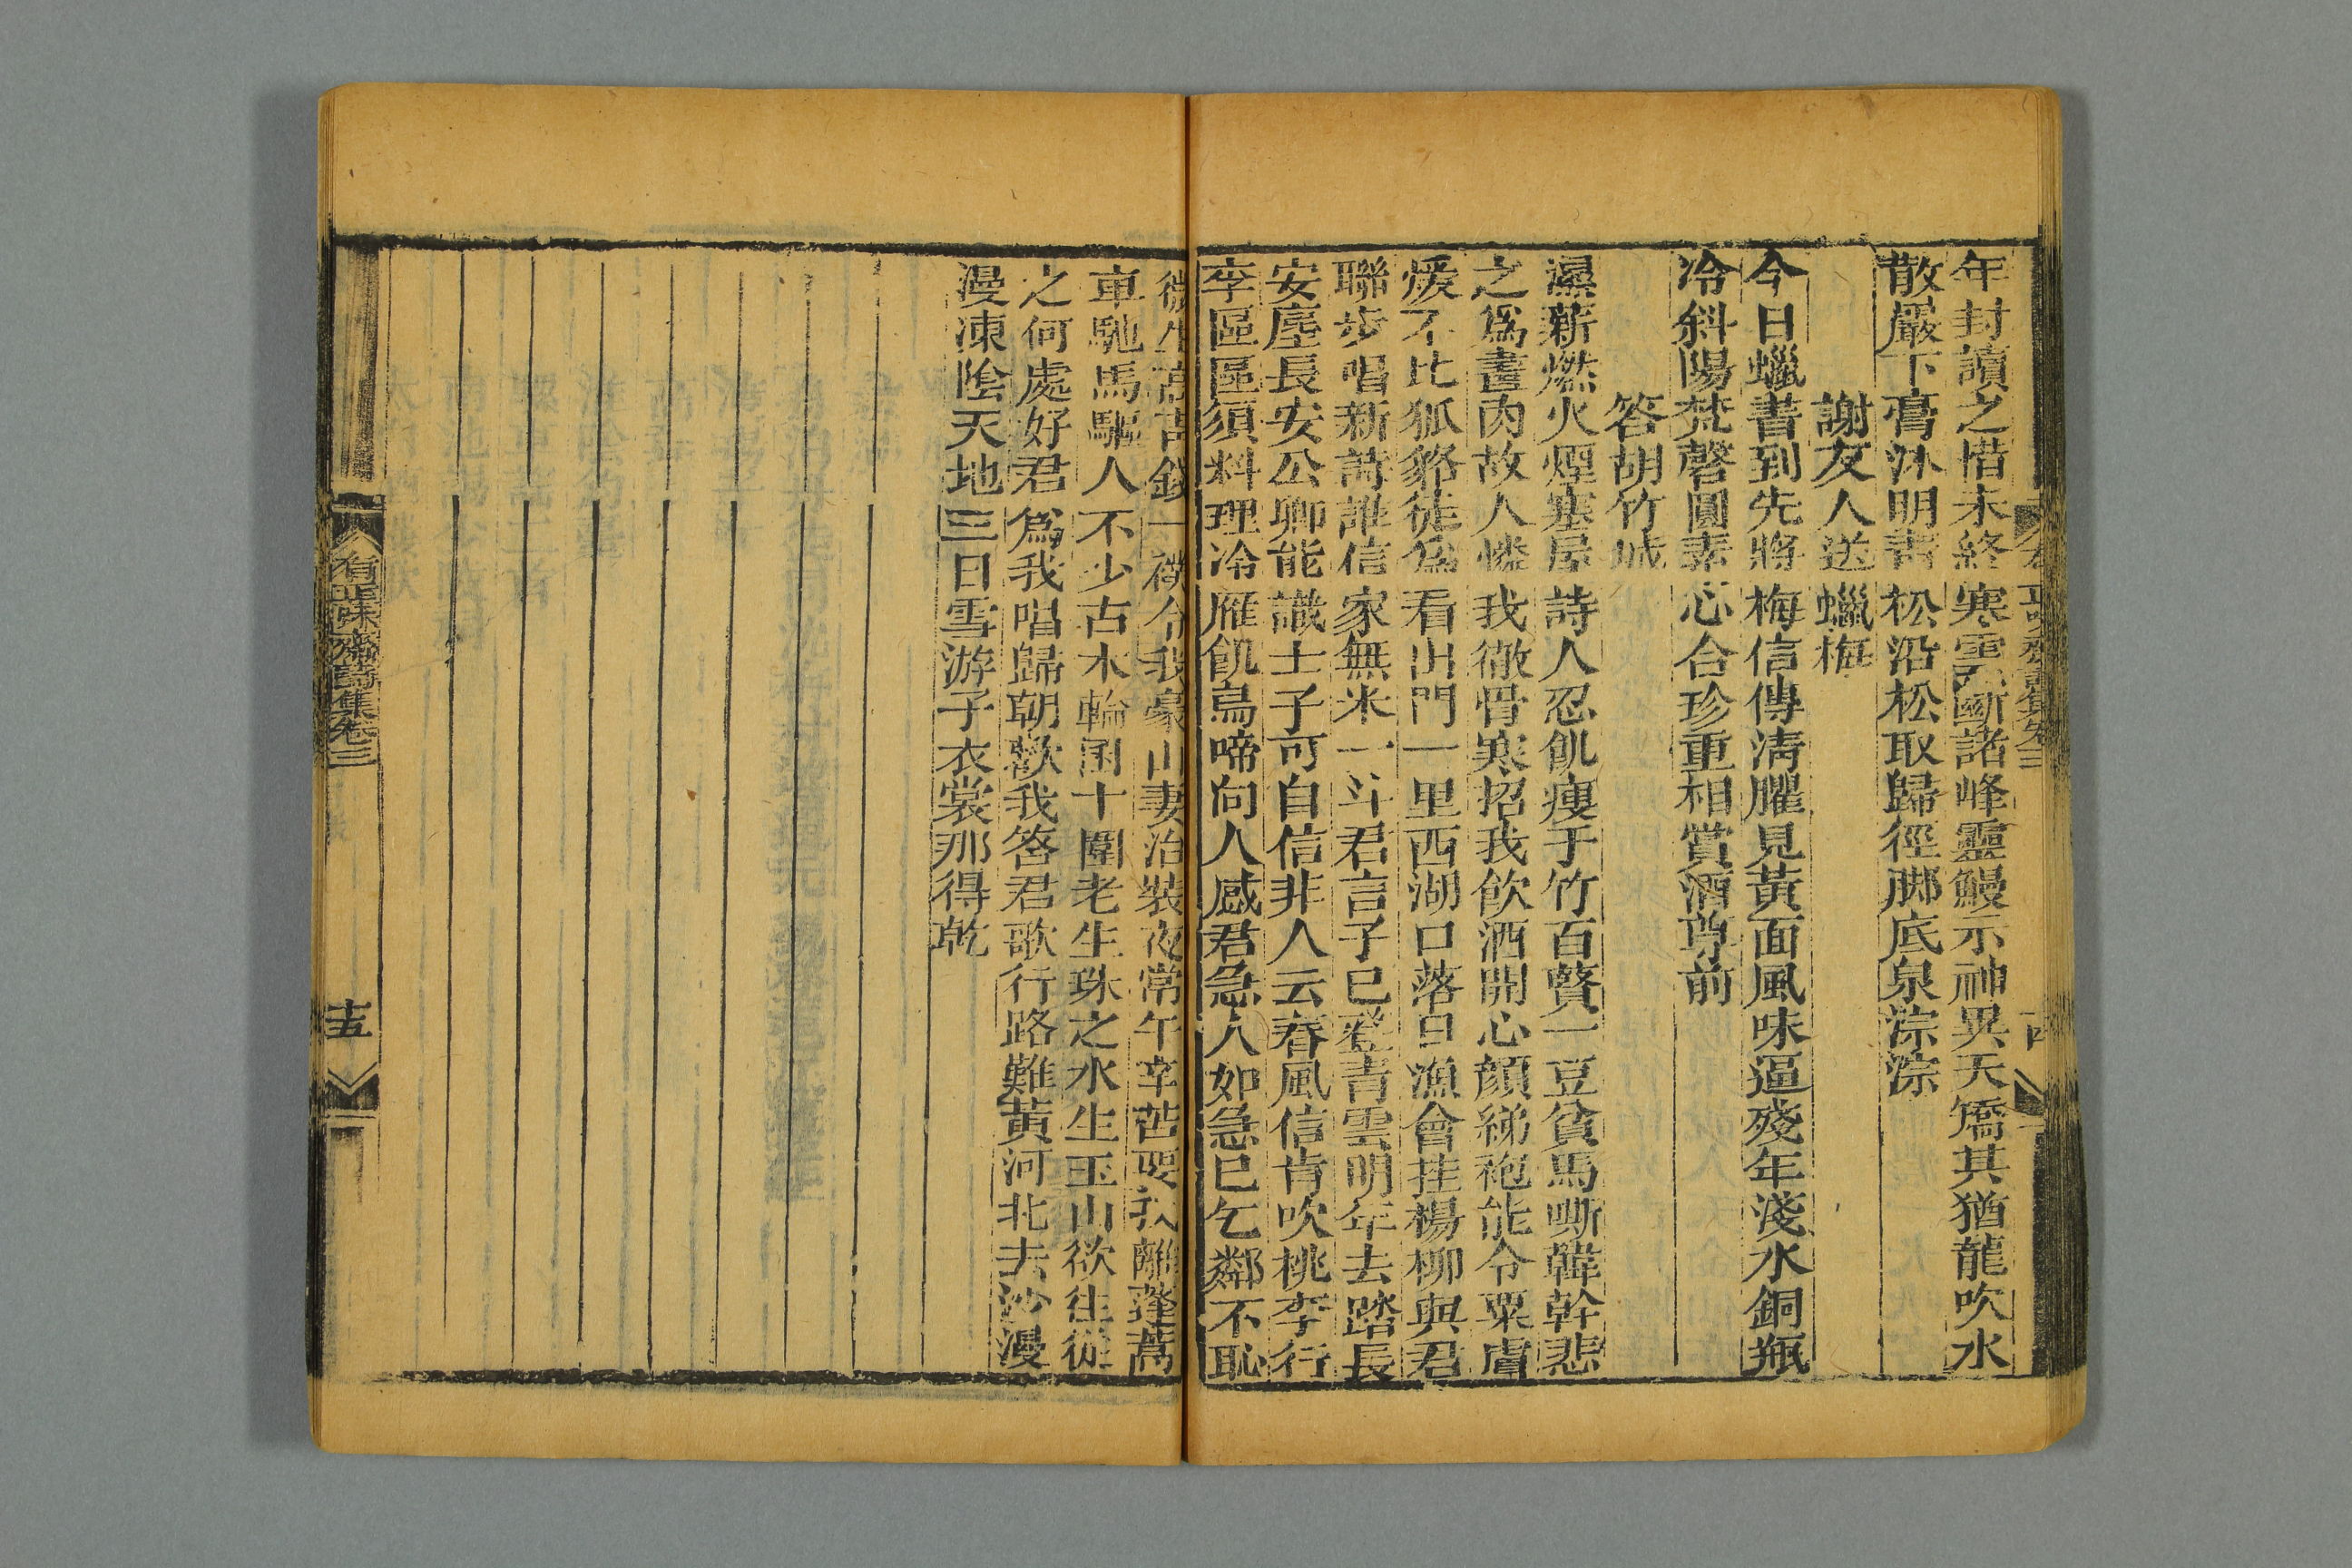 年封讀之惜未終寒雲斷諸峰靈鰻示神異天矯其猶龍吹水
散嚴下膏沐明書松沿松取歸徑脚底泉淙淙
謝友人送蠟梅
今日蠟書到先將梅信傳淸臞見黃面風味逼殘年淺水銅甁
冷斜陽梵磬圓素心合珍重相賞酒尊前
答胡竹城
濕薪燃火煙塞屋詩人忍飢瘦于竹百贅一豆貧馬嘶韓幹悲
之爲畫肉故人憐我徹骨寒招我飮酒開心顔綈袍能令粟膚
煖不比狐貉徒爲看出門一里西湖口落日漁會挂楊柳與君
聯步唱新詩誰信家無米一斗君言子已登靑雲明年去踏長
安塵長安公卿能識士子可自信非人云春風信肯吹桃李行
李區區須料理冷雁飢烏啼向人感君急人如急已乞鄰不恥
微生高古錢一襆合我豪山妻治裝夜常午辛苦要我離蓬蒿
車馳馬驅人不少古木輪囷十圍老生珠之水生玉山欲往從
之何處好君爲我唱歸朝歡我答君歌行路難黃河北去沙漫
漫凍陰天地三日雪游子衣裳那得乾
有正味齋詩集卷三
十五